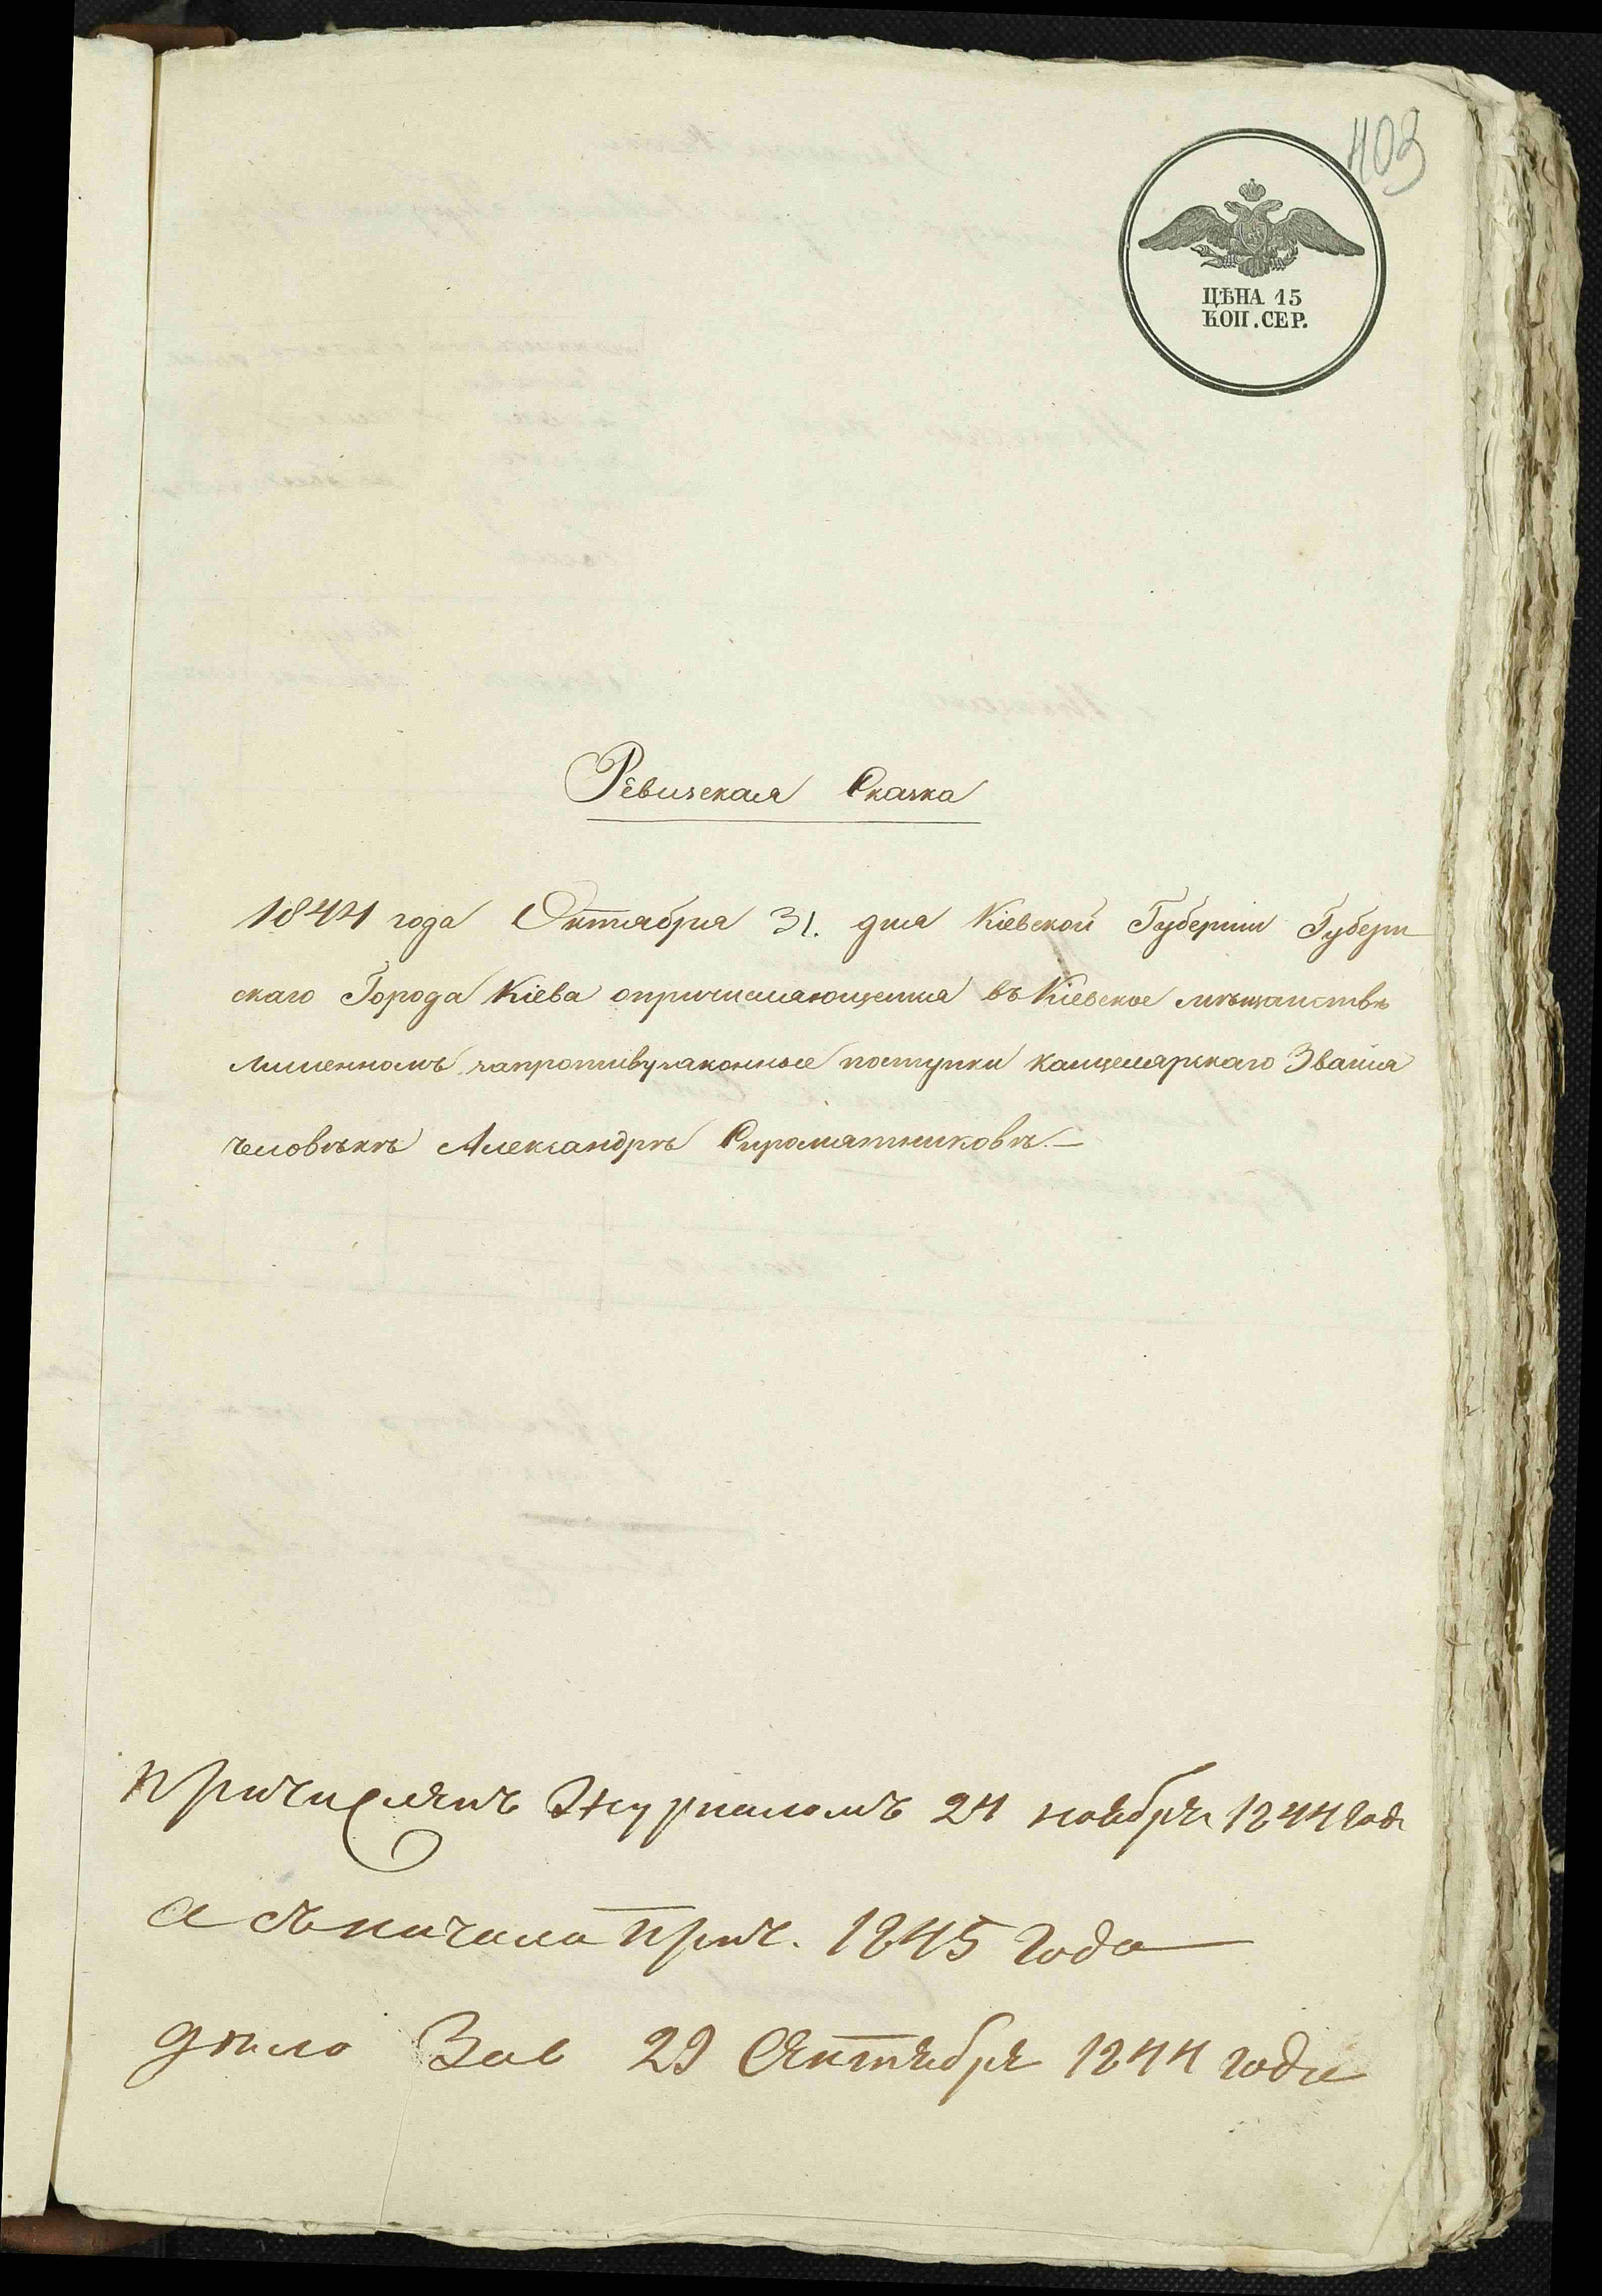 403
ЦѢНА 15
КОП. СЕР.
Ревизская Сказка
1844 года Октября 31. дня Кіевской Губерніи Губерн
скаго Города Кіева опричисляющемся въ Кіевское мѣщанствѣ
лишенномъ запротивузаконные поступки канцелярскаго Званія
человѣкѣ Александрѣ Сыромятниковѣ.—
Причисленъ Журналомъ 24 ноября 1844 года
а съ начала прич. 1845 года
дѣло Зав 29 Сентября 1844 года